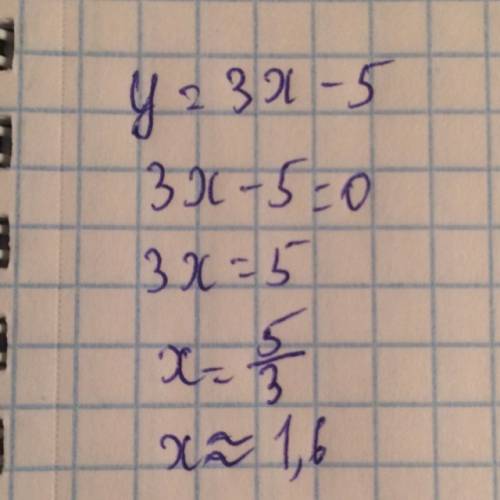 y = 3x - 5
3x - 5 = 0
3x = 5
x = 5/3
x ≈ 1,6